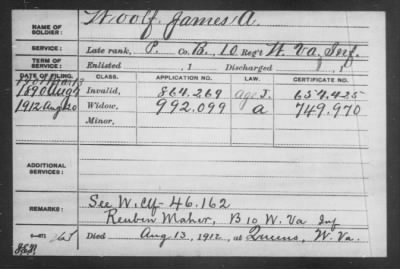 NAME OF SOLDIER: Woolf, James A.
SERVICE: Late rank, P. Co. B, 10 Reg't W. Va. Inf.
TERM OF SERVICE: Enlisted , 1 Discharged , 1
DATE OF FILING. CLASS. APPLICATION NO. LAW. CERTIFICATE NO.
1890 Aug 7 Invalid, 864.269 age J. 657.425
1912 Aug 20 Widow, 992.099 a 749.970
Minor,
ADDITIONAL SERVICES:
REMARKS: See W. Ctf- 46.162
Reuben Maher, B 10 W. Va Inf
Died Aug 13, 1912, at Queens, W. Va.